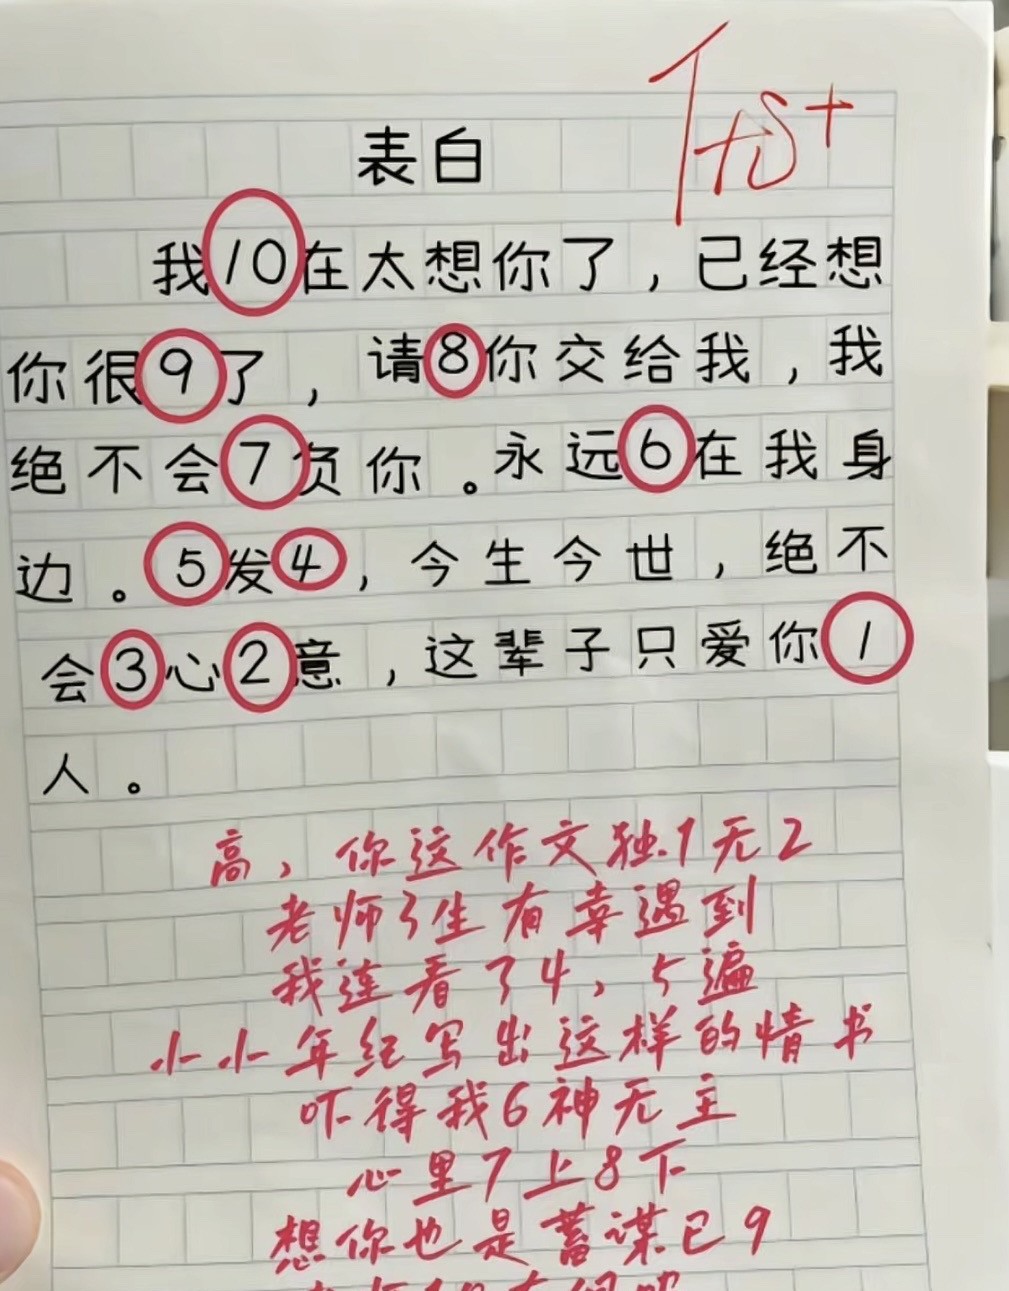 表白
优S+
我10在太想你了，已经想
你很9了，请8你交给我，我
绝不会7负你。永远6在我身
边。5发4，今生今世，绝不
会3心2意，这辈子只爱你1
人。
高，你这作文独1无2
老师3生有幸遇到
我连看了4，5遍
小小年纪写出这样的情书
吓得我6神无主
心里7上8下
想你也是蓄谋已9